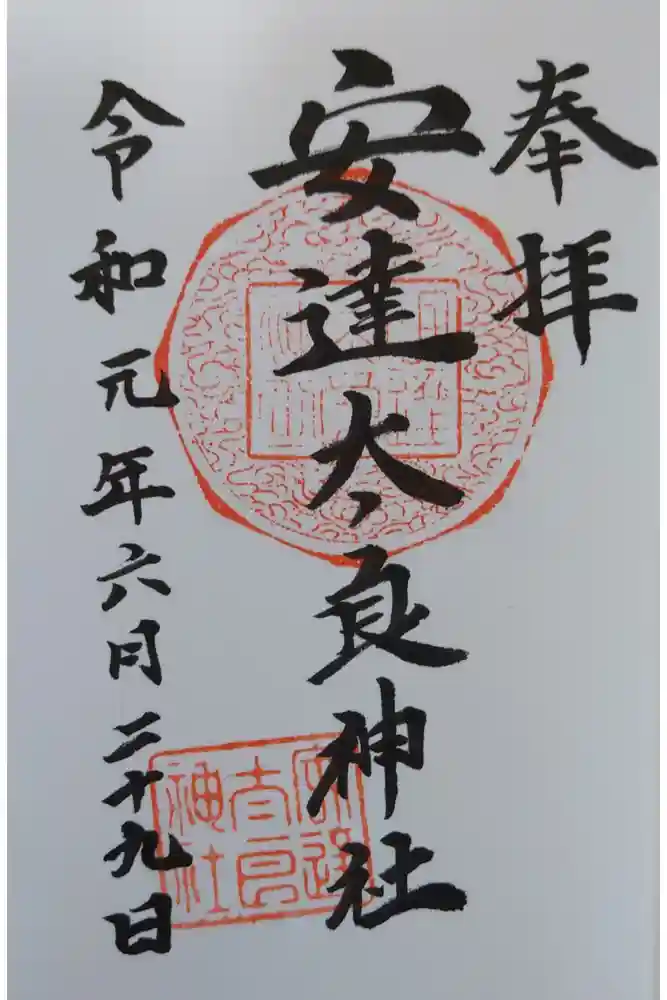 奉拝
安達太良神社
令和元年六月二十九日
安達
太良
神社